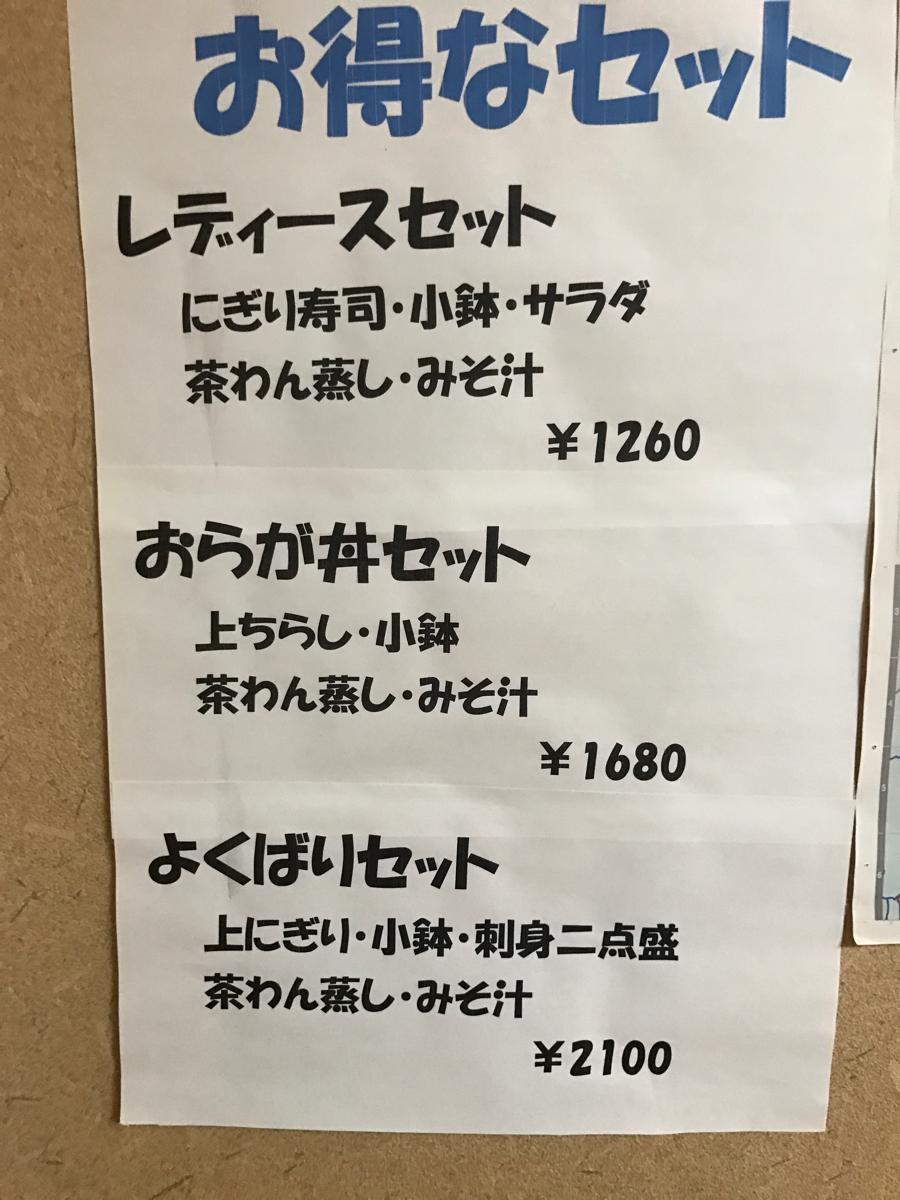 お得なセット
レディースセット
にぎり寿司・小鉢・サラダ
茶わん蒸し・みそ汁
￥1260
おらが丼セット
上ちらし・小鉢
茶わん蒸し・みそ汁
￥1680
よくばりセット
上にぎり・小鉢・刺身二点盛
茶わん蒸し・みそ汁
￥2100